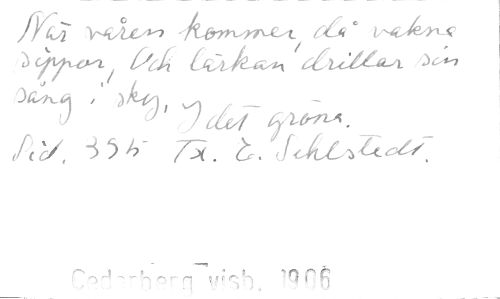 När våren kommer, då vakna
sippor, Och lärkan drillar sin
sång i sky, I det gröna.
Sid. 395 Tx. E. Sehlstedt.
Cederberg visb. 1906